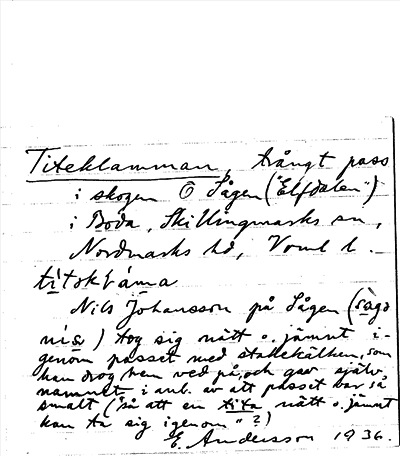 Titeklamman, trångt pass
i skogen Ö Sågen ("Elfdalen")
i Boda, Skillingmarks sn,
Nordmarks hd, Vrml l.
títəkɫáma
Nils Johansson på Sågen (
) tog sig nätt o. jämnt i-
genom passet med stakekälken, som
han drog hem ved på, och gav själv
namnet i anl. av att passet var så
smalt ("så att en tita nätt o. jämnt
kan ta sig igenom"?)
E. Andersson 1936.